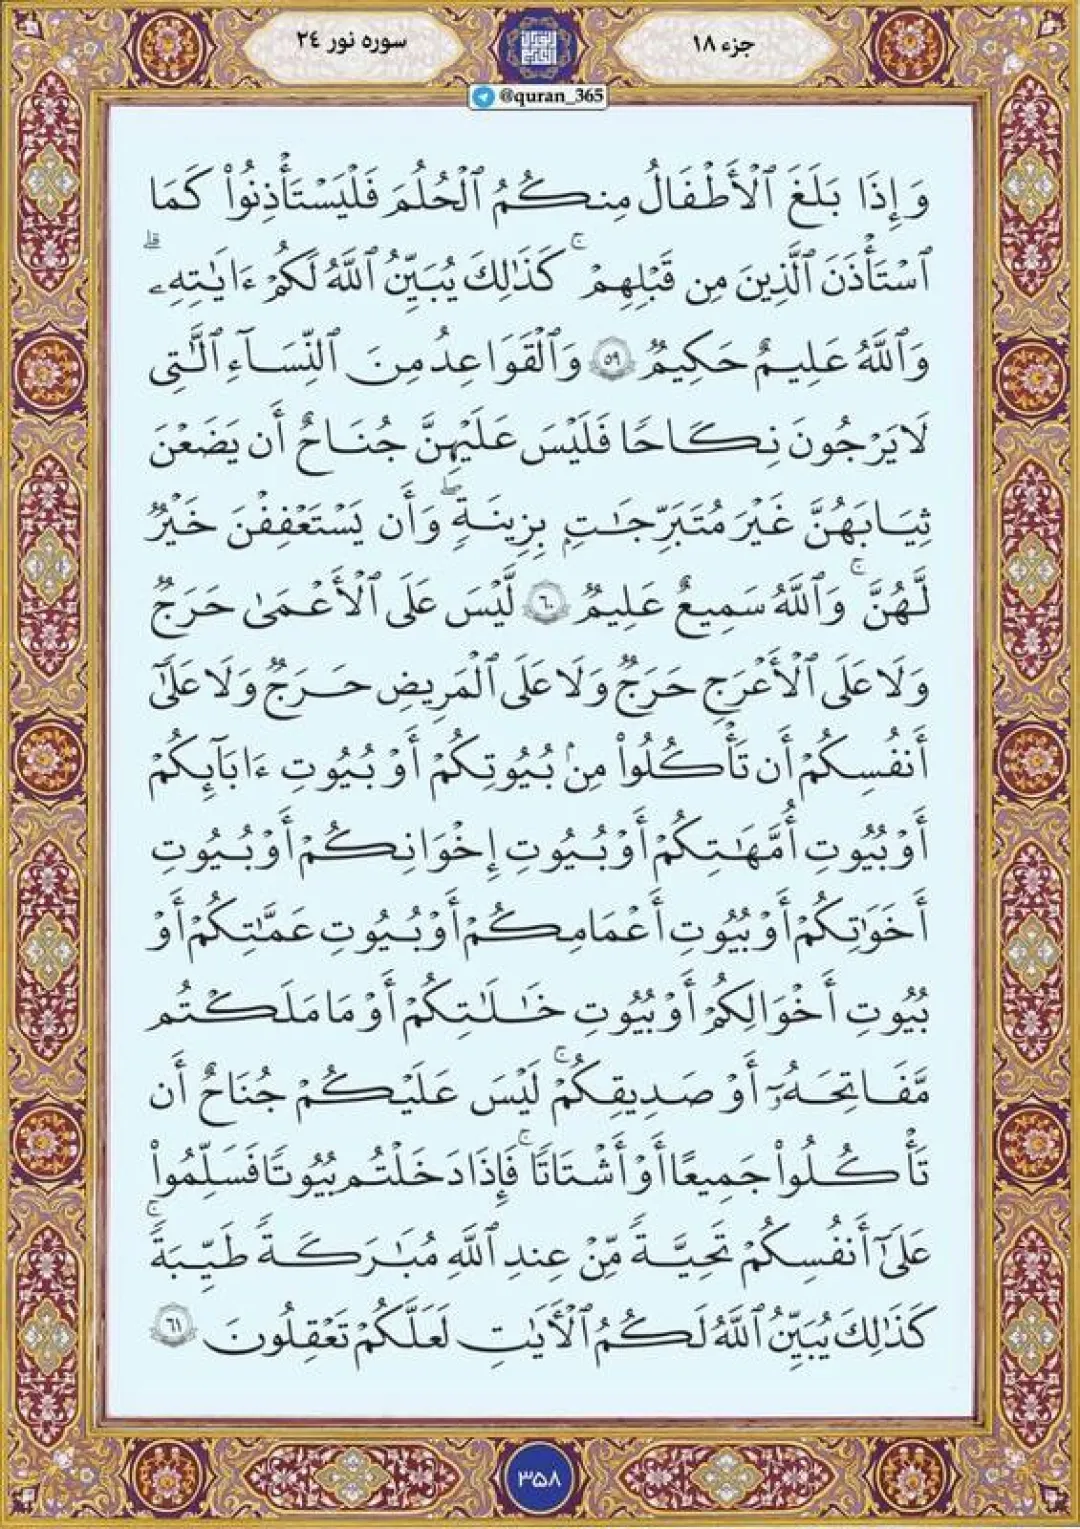 جزء ١٨
سوره نور ٢٤
@quran_365
وَإِذَا بَلَغَ ٱلْأَطْفَالُ مِنكُمُ ٱلْحُلُمَ فَلْيَسْتَـْٔذِنُوا۟ كَمَا
ٱسْتَـْٔذَنَ ٱلَّذِينَ مِن قَبْلِهِمْ ۚ كَذَٰلِكَ يُبَيِّنُ ٱللَّهُ لَكُمْ ءَايَـٰتِهِۦ ۗ
وَٱللَّهُ عَلِيمٌ حَكِيمٌ ٥٩ وَٱلْقَوَاعِدُ مِنَ ٱلنِّسَآءِ ٱلَّـٰتِى
لَا يَرْجُونَ نِكَاحًا فَلَيْسَ عَلَيْهِنَّ جُنَاحٌ أَن يَضَعْنَ
ثِيَابَهُنَّ غَيْرَ مُتَبَرِّجَـٰتٍۭ بِزِينَةٍ ۖ وَأَن يَسْتَعْفِفْنَ خَيْرٌ
لَّهُنَّ ۗ وَٱللَّهُ سَمِيعٌ عَلِيمٌ ٦٠ لَّيْسَ عَلَى ٱلْأَعْمَىٰ حَرَجٌ
وَلَا عَلَى ٱلْأَعْرَجِ حَرَجٌ وَلَا عَلَى ٱلْمَرِيضِ حَرَجٌ وَلَا عَلَىٰٓ
أَنفُسِكُمْ أَن تَأْكُلُوا۟ مِنۢ بُيُوتِكُمْ أَوْ بُيُوتِ ءَابَآئِكُمْ
أَوْ بُيُوتِ أُمَّهَـٰتِكُمْ أَوْ بُيُوتِ إِخْوَانِكُمْ أَوْ بُيُوتِ
أَخَوَٰتِكُمْ أَوْ بُيُوتِ أَعْمَامِكُمْ أَوْ بُيُوتِ عَمَّـٰتِكُمْ أَوْ
بُيُوتِ أَخْوَالِكُمْ أَوْ بُيُوتِ خَـٰلَـٰتِكُمْ أَوْ مَا مَلَكْتُم
مَّفَاتِحَهُۥٓ أَوْ صَدِيقِكُمْ ۚ لَيْسَ عَلَيْكُمْ جُنَاحٌ أَن
تَأْكُلُوا۟ جَمِيعًا أَوْ أَشْتَاتًا ۚ فَإِذَا دَخَلْتُم بُيُوتًا فَسَلِّمُوا۟
عَلَىٰٓ أَنفُسِكُمْ تَحِيَّةً مِّنْ عِندِ ٱللَّهِ مُبَـٰرَكَةً طَيِّبَةً ۚ
كَذَٰلِكَ يُبَيِّنُ ٱللَّهُ لَكُمُ ٱلْـَٔايَـٰتِ لَعَلَّكُمْ تَعْقِلُونَ ٦١
٣٥٨